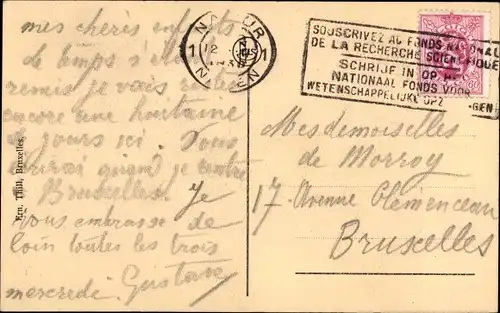 mes chéris enfants
de temps s'étant
remis je vais rester
encore une huitaine
de jours ici. Vous
écrirai quand je rentre
Bruxelles. Je
vous embrasse de
loin toutes les trois
mercredi. Gustave
Ern. Thill, Bruxelles.
NAMUR
1 12 1
NAMEN
SOUSCRIVEZ AU FONDS NATIONAL
DE LA RECHERCHE SCIENTIFIQUE
SCHRIJF IN OP HET
NATIONAAL FONDS VOOR
WETENSCHAPPELIJK OPZ GEN
Mesdemoiselles
de Morroy
17. Avenue Clémenceau
Bruxelles